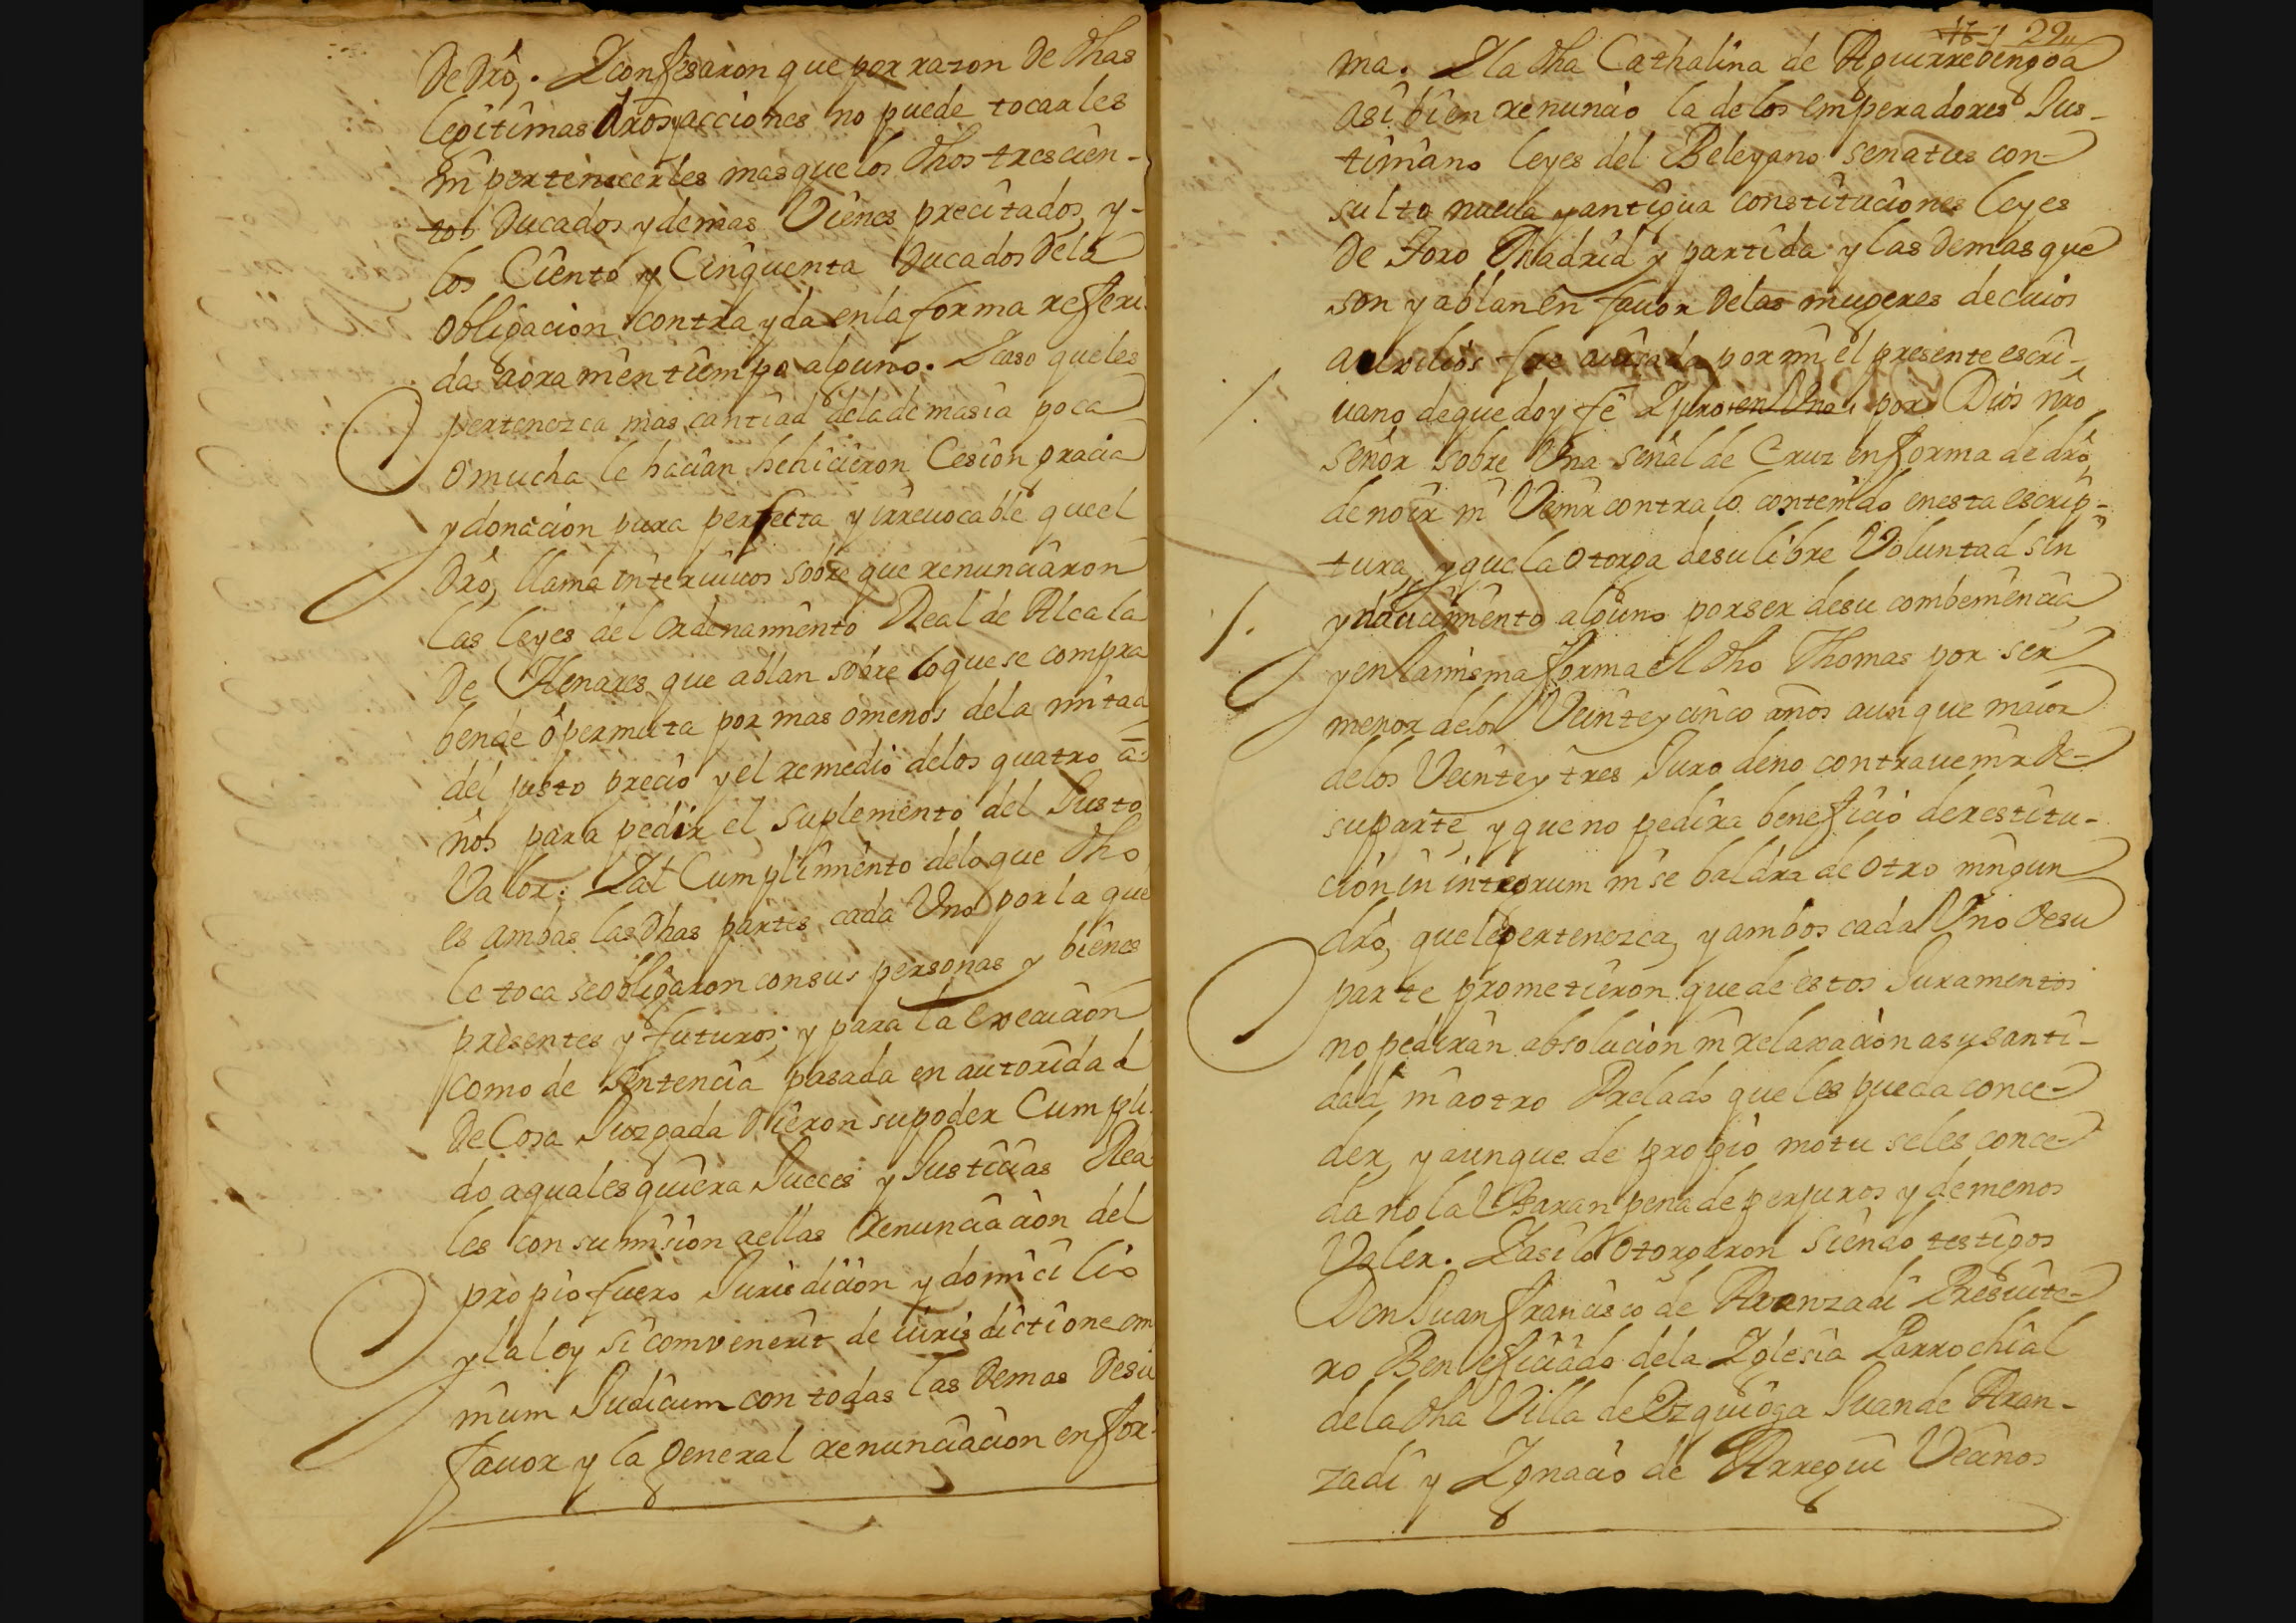 De dro,. Y confesaron que por razon de dhas
legitimas dros y acciones no puede tocarles
ni pertenecerles mas que los dhos trescien-
tos Ducados y demas Vienes precitados, y-
los Ciento y Cinquenta Ducados Dela
obligacion contrayda en la forma referi
da aora ni en tiempo alguno. Y caso que les
pertenezca mas cantidad de la demasia poca
o mucha le hacian he hicieron Cesion gracia
y donacion pura perfecta y irreuocable que el
Dro, llama interuiuos sobre que renunciaron
las leyes del ordenamiento Real de Alcala
De Henares que ablan sobre lo que se compra
bende ô permuta por mas o menos de la mitad
del justo precio y el remedio de los quatro a-
ños para pedir el suplemento del Justo
Valor: Y al Cumplimiento de lo que dho
es ambas las Dhas partes, cada Uno por la que
le toca se obligaron con sus personas y bienes
presentes y futuros; y para la execucion
como de sentencia pasada en autoridad
De Cosa Juzgada Dieron su poder Cumpli
do a qualesquiera Jueces y Justicias Rea
les con sumision a ellas renunciacion del
propio fuero Jurisdicion y domicilio
y la ley si combenerit de iurisdictione om
nium Judicum con todas las Demas Desu
fauor y la general renunciacion en for-
29
ma. Y la dha Cathalina de Aguirrebengoa
asi bien renuncio la de los emperadores Jus-
tiniano leyes del Beleyano senatus con-
sulto nueua y antigua constituciones leyes
De Toro Madrid y partida y las Demas que
son y ablan en fauor Delas mugeres de cuios
auxilios fue auisada por mi el presente escri-
uano de que doy fe Y juro en Una por Dios nro
señor sobre Una señal de Cruz en forma de dro,
de no ir ni Venir contra lo contenido en esta escrip-
tura, y que la otorga de su libre Voluntad sin
ynducimiento alguno por ser de su combeniencia,
y en la misma forma el dho Thomas por ser
menor de los Veinte y cinco años aunque maior
de los Veinte y tres Juro de no contrauenir De-
su parte, y que no pedira beneficio de restitu-
cion in integrum ni se baldra de otro ningun
dro, que le pertenezca, y ambos cada Uno Desu
parte prometieron que de estos Juramentos
no pediran absolucion ni relaxacion a su santi-
dad ni a otro Prelado que les pueda conce-
der, y aunque de propio motu se les conce-
da no la Usaran pena de perjuros y de menos
Valer. Y asi lo otorgaron siendo testigos
Don Juan francisco de Aranzadi Presuite-
ro Beneficiado dela Yglesia Parrochial
dela dha Villa de Ezquioga Juan de Aran-
zadi y Ygnacio de Arregui Vecinos